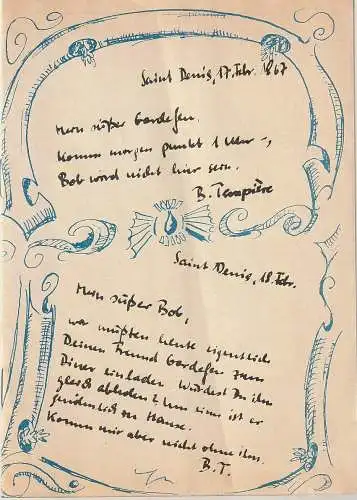 Saint Denis, 17. Febr. 1867
Mein süßer Gardefen.
Komm morgen punkt 1 Uhr –,
Bob wird nicht hier sein.
B. Tempière
Saint Denis, 18. Febr.
Mein süßer Bob,
wir müßten heute eigentlich
Deinen Freund Gardefen zum
Diner einladen. Würdest Du ihn
gleich abholen? Um eins ist er
zu Hause.
Komm mir aber nicht ohne ihn.
B. T.